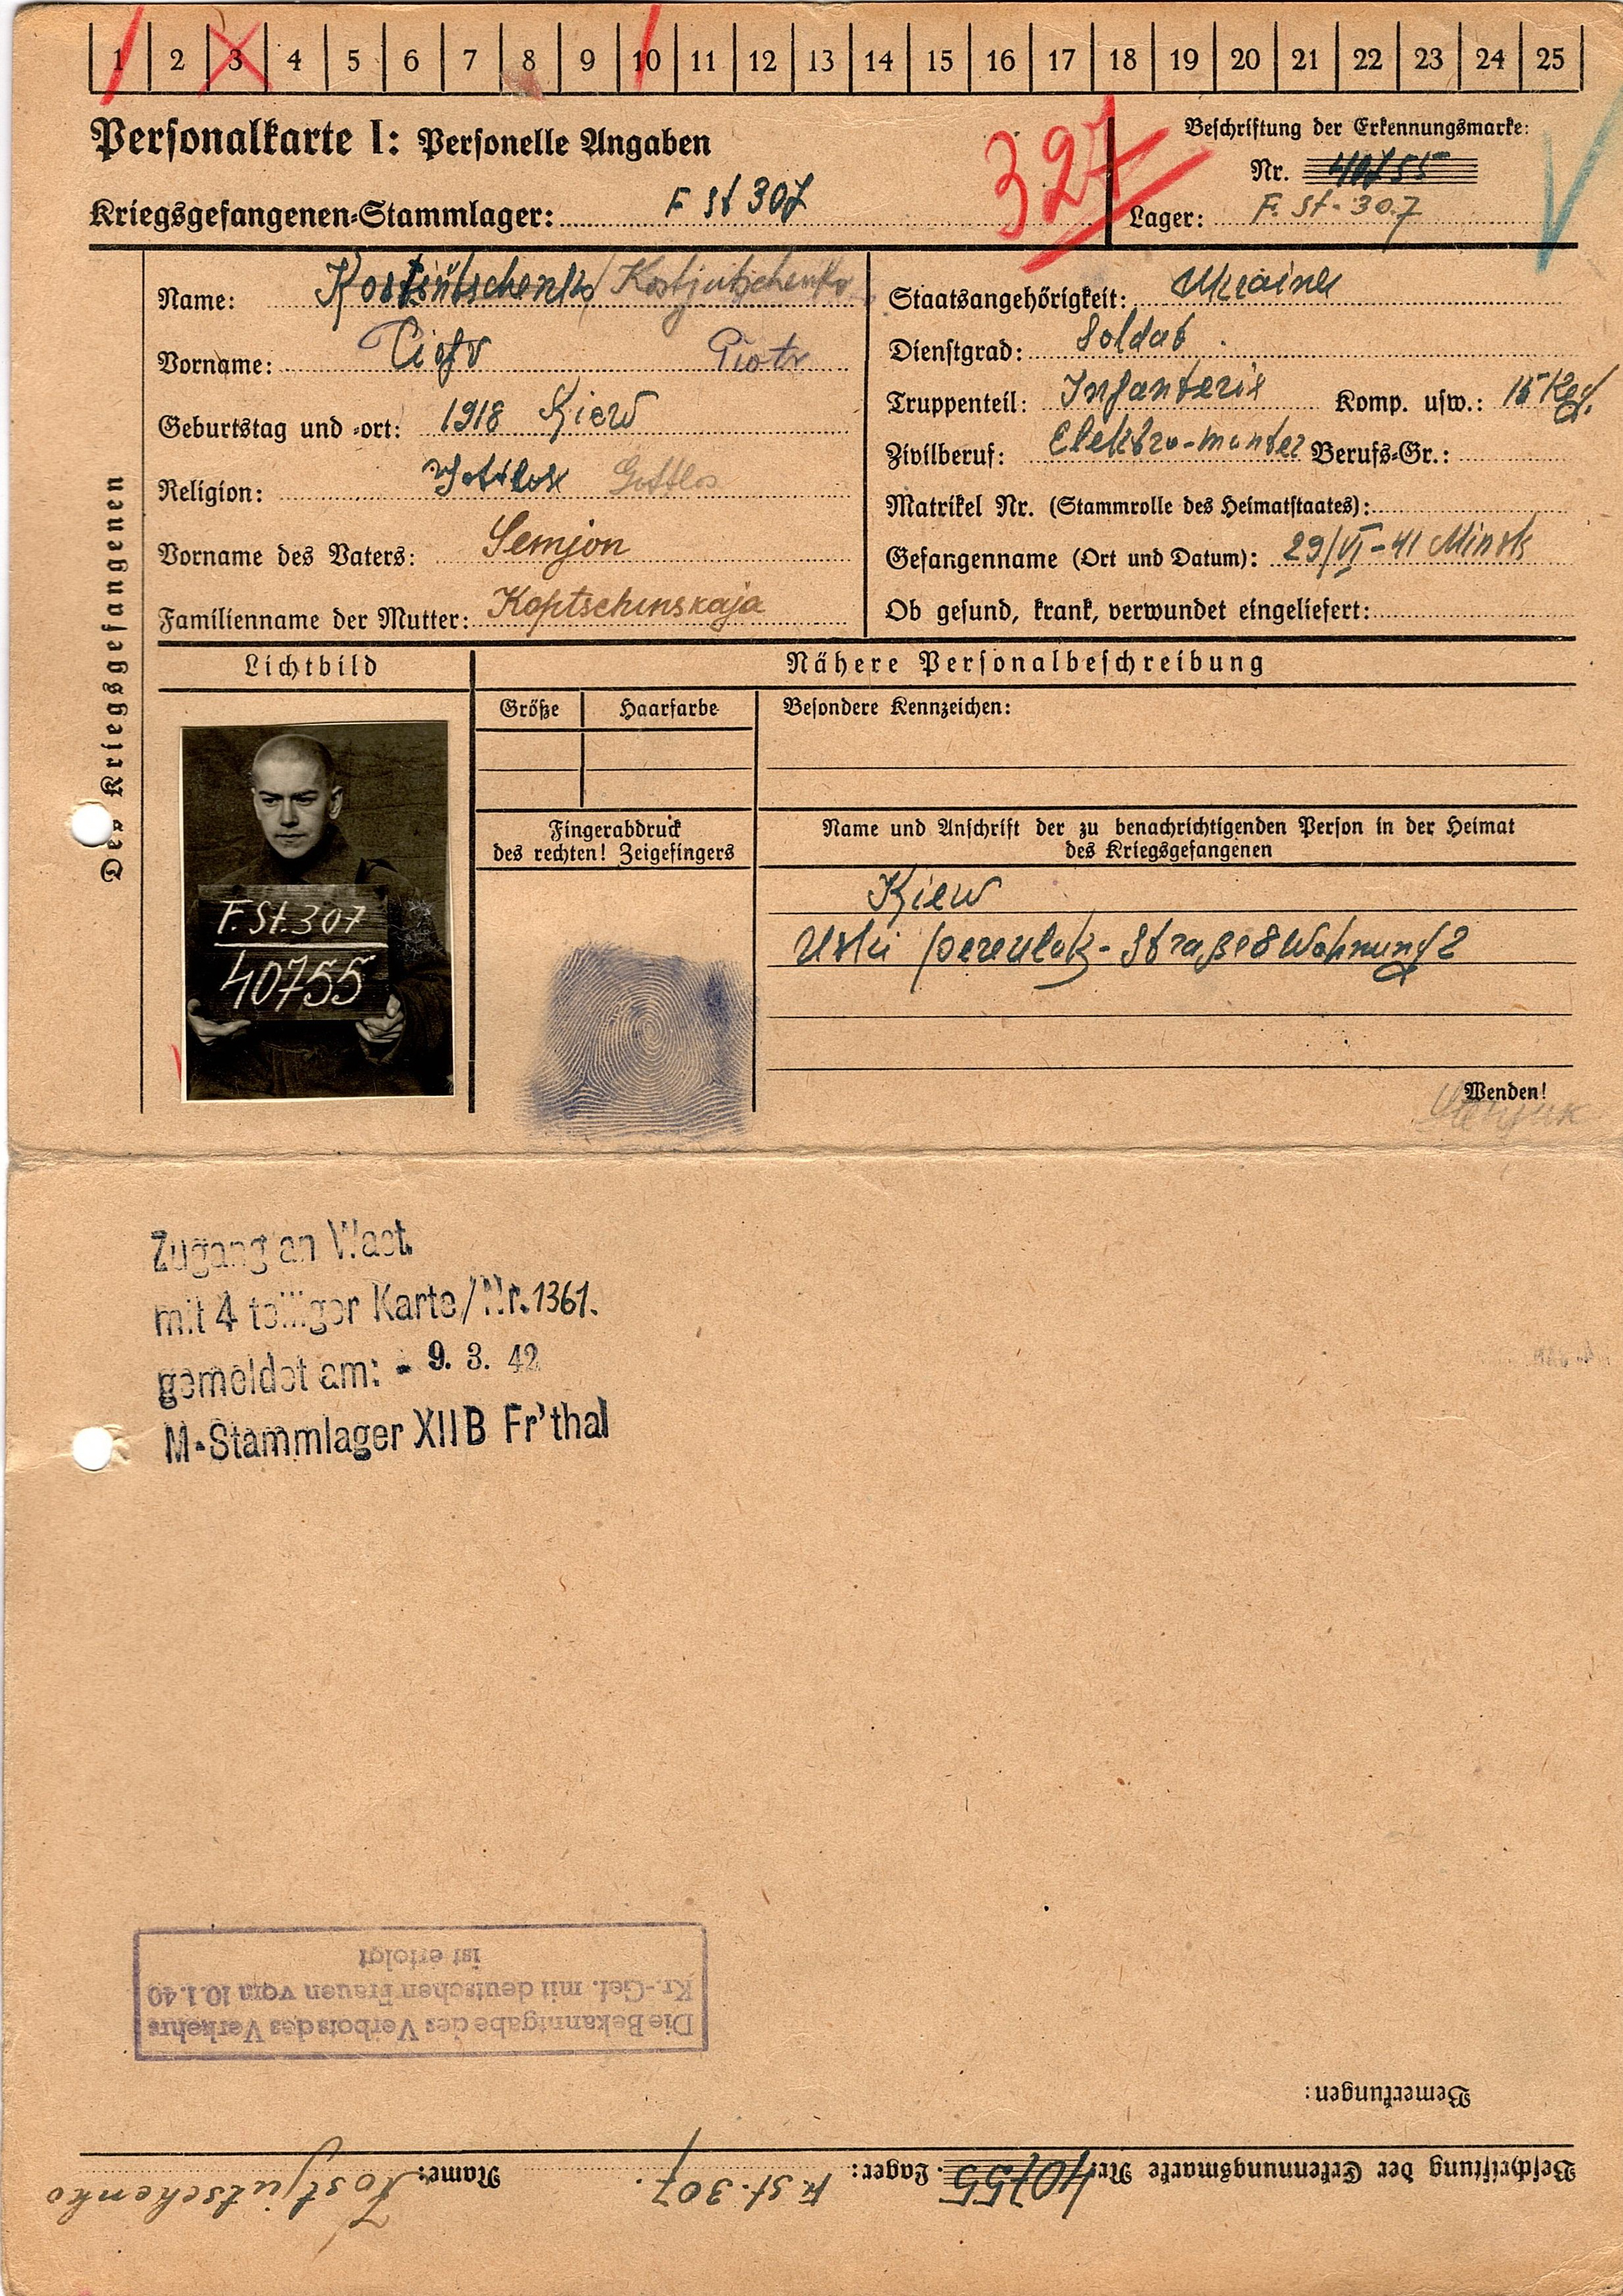 1 2 3 4 5 6 7 8 9 10 11 12 13 14 15 16 17 18 19 20 21 22 23 24 25
Personalkarte I: Personelle Angaben
Kriegsgefangenen-Stammlager: F St 307
327
Beschriftung der Erkennungsmarke:
Nr. 40755
Lager: F. St. 307
Des Kriegsgefangenen
Name: Kostjütschenko / Kostjutschenko
Vorname: Piotr Piotr
Geburtstag und -ort: 1918 Kiew
Religion: Gottlos Gottlos
Vorname des Vaters: Semjon
Familienname der Mutter: Koptschinskaja
Staatsangehörigkeit: Ukrainer
Dienstgrad: Soldat
Truppenteil: Infanterie Komp. usw.: 15 Reg.
Zivilberuf: Elektro-monter Berufs-Gr.:
Matrikel Nr. (Stammrolle des Heimatstaates):
Gefangennahme (Ort und Datum): 29/VI-41 Minsk
Ob gesund, krank, verwundet eingeliefert:
Lichtbild
Nähere Personalbeschreibung
Größe Haarfarbe Besondere Kennzeichen:
Fingerabdruck
des rechten! Zeigefingers
Name und Anschrift der zu benachrichtigenden Person in der Heimat
des Kriegsgefangenen
F. St. 307
40755
Kiew
pereulok-Straße 8 Wohnung 2
Wenden!
Zugang an Wast.
mit 4 teiliger Karte/Nr. 1361.
gemeldet am: - 9. 3. 42
M-Stammlager XII B Fr'thal
Beschriftung der Erkennungsmarke Nr. 40755. Lager: F. St. 307. Name: Kostjütschenko
Bemerkungen:
Die Bekanntgabe des Verbots des Verkehrs
Kr.-Gef. mit deutschen Frauen vom 10.1.40
ist erfolgt